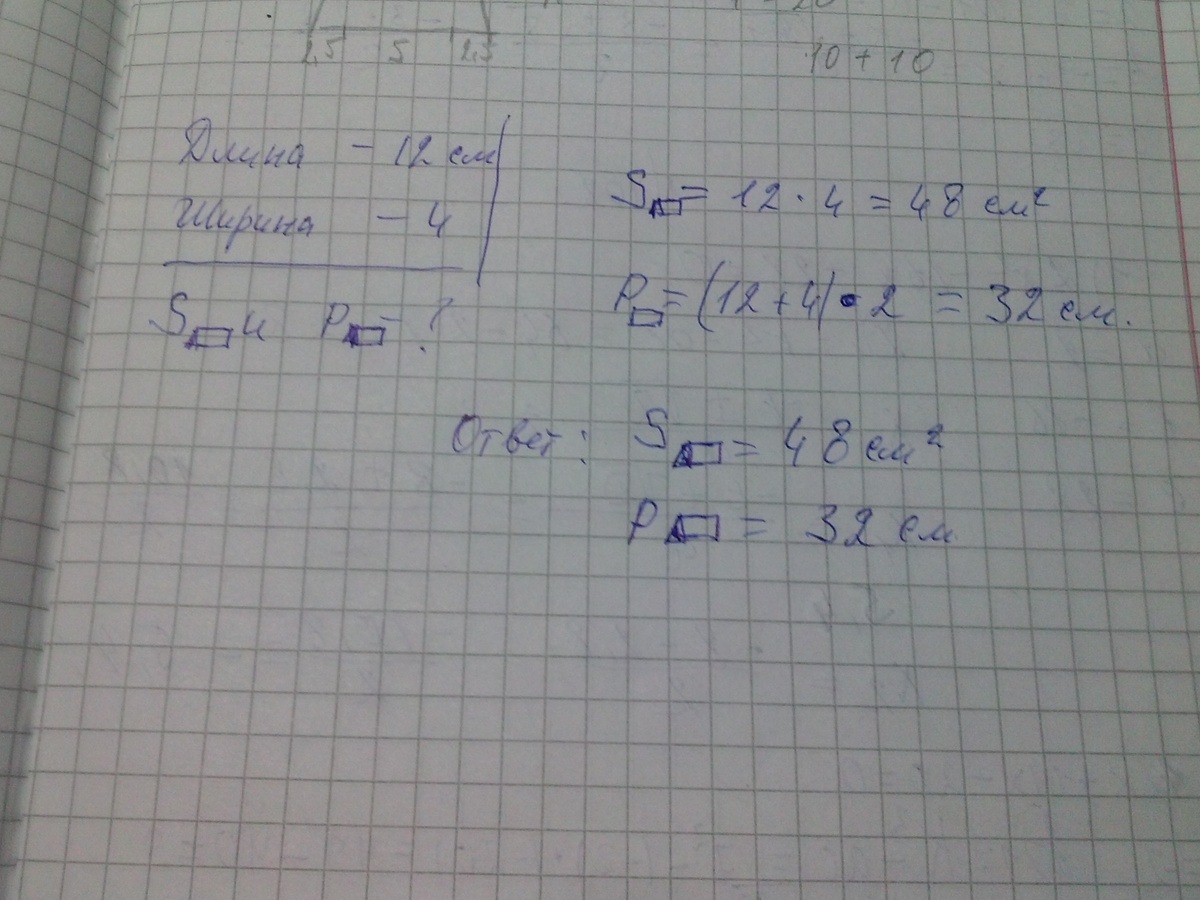 2,5 5 2,5
10 + 10
Длина - 12 см
Ширина - 4
S▭ и P▭ - ?
S▭ = 12 · 4 = 48 см²
P▭ = (12 + 4) · 2 = 32 см.
Ответ: S▭ = 48 см²
P▭ = 32 см